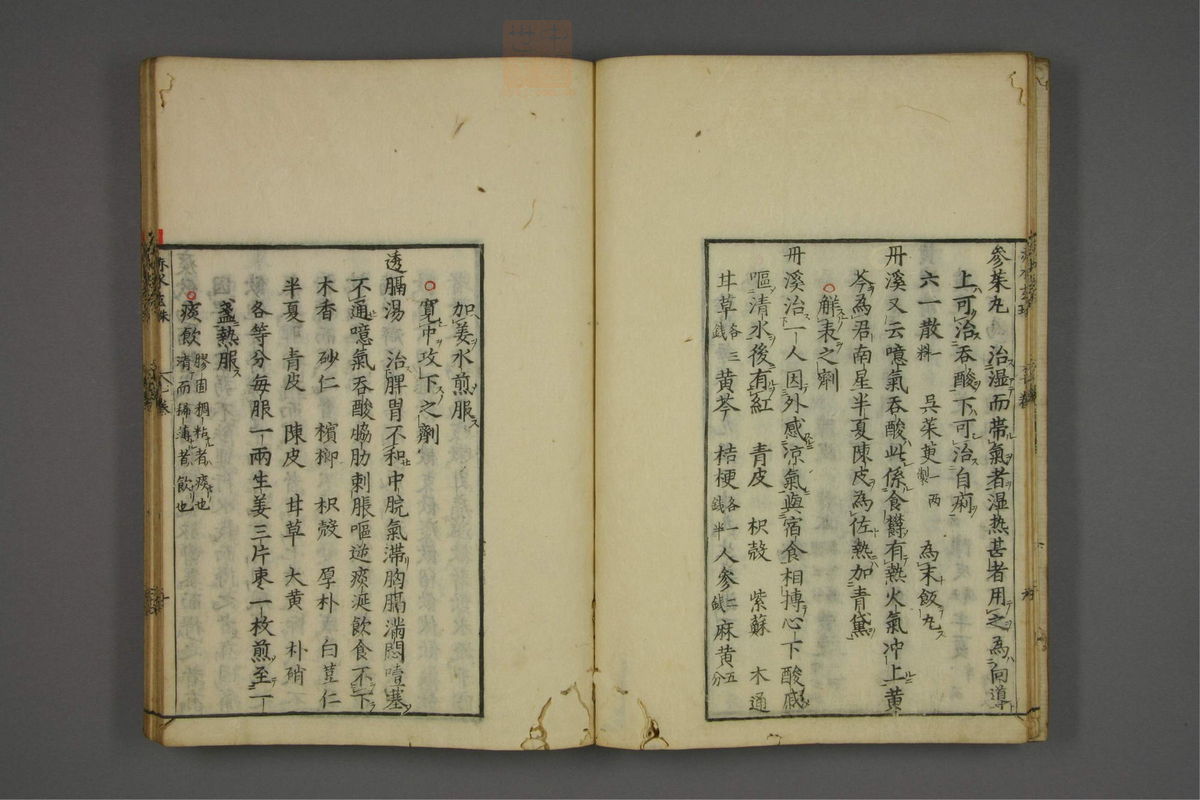 參茱丸　治湿而帯氣者湿热甚者用之為向導
上可治吞酸下可治自痢
六一散一料　呉茱萸一两製　為末飯丸
丹溪又云噫氣吞酸此係食欝有熱火氣冲上黄
芩為君南星半夏陳皮為佐熱加青黛
解表之劑
丹溪治一人因外感涼氣與宿食相搏心下酸慼
嘔清水後有紅　青皮　枳殻　紫蘇　木通
甘草各三錢　黄芩　桔梗各一錢半　人參二錢　麻黄五分
加姜水煎服
寛中攻下之劑
透膈湯　治脾胃不和中脘氣滞胸膈満悶噎塞
不通噫氣吞酸脇肋刺脹嘔逆痰涎飲食不下
木香　砂仁　檳榔　枳殻　厚朴　白荳仁
半夏　青皮　陳皮　甘草　大黄　朴硝
各等分毎服一兩生姜三片枣一枚煎至一
盞熱服
痰飲　膠固稠粘者痰也
清而稀薄者飲也